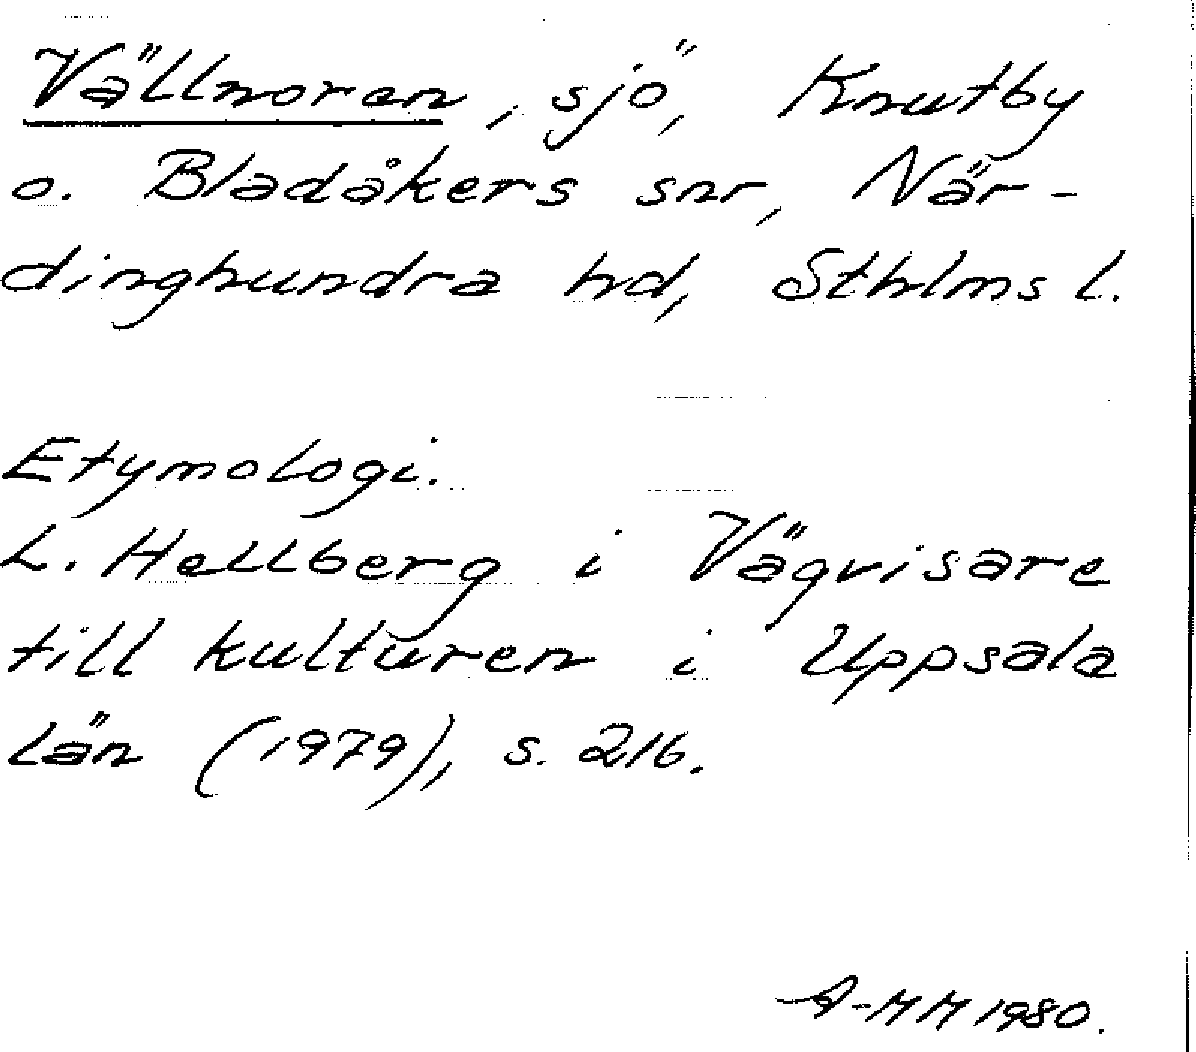 Vällnoren, sjö, Knutby
o. Bladåkers snr, När-
dinghundra hd, Sthlms l.
Etymologi.
L. Hellberg i Vägvisare
till kulturen i Uppsala
län (1979), s. 216.
A-MM 1980.